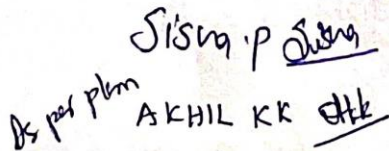 Sisna.P Sisna
As per plan
AKHIL KK